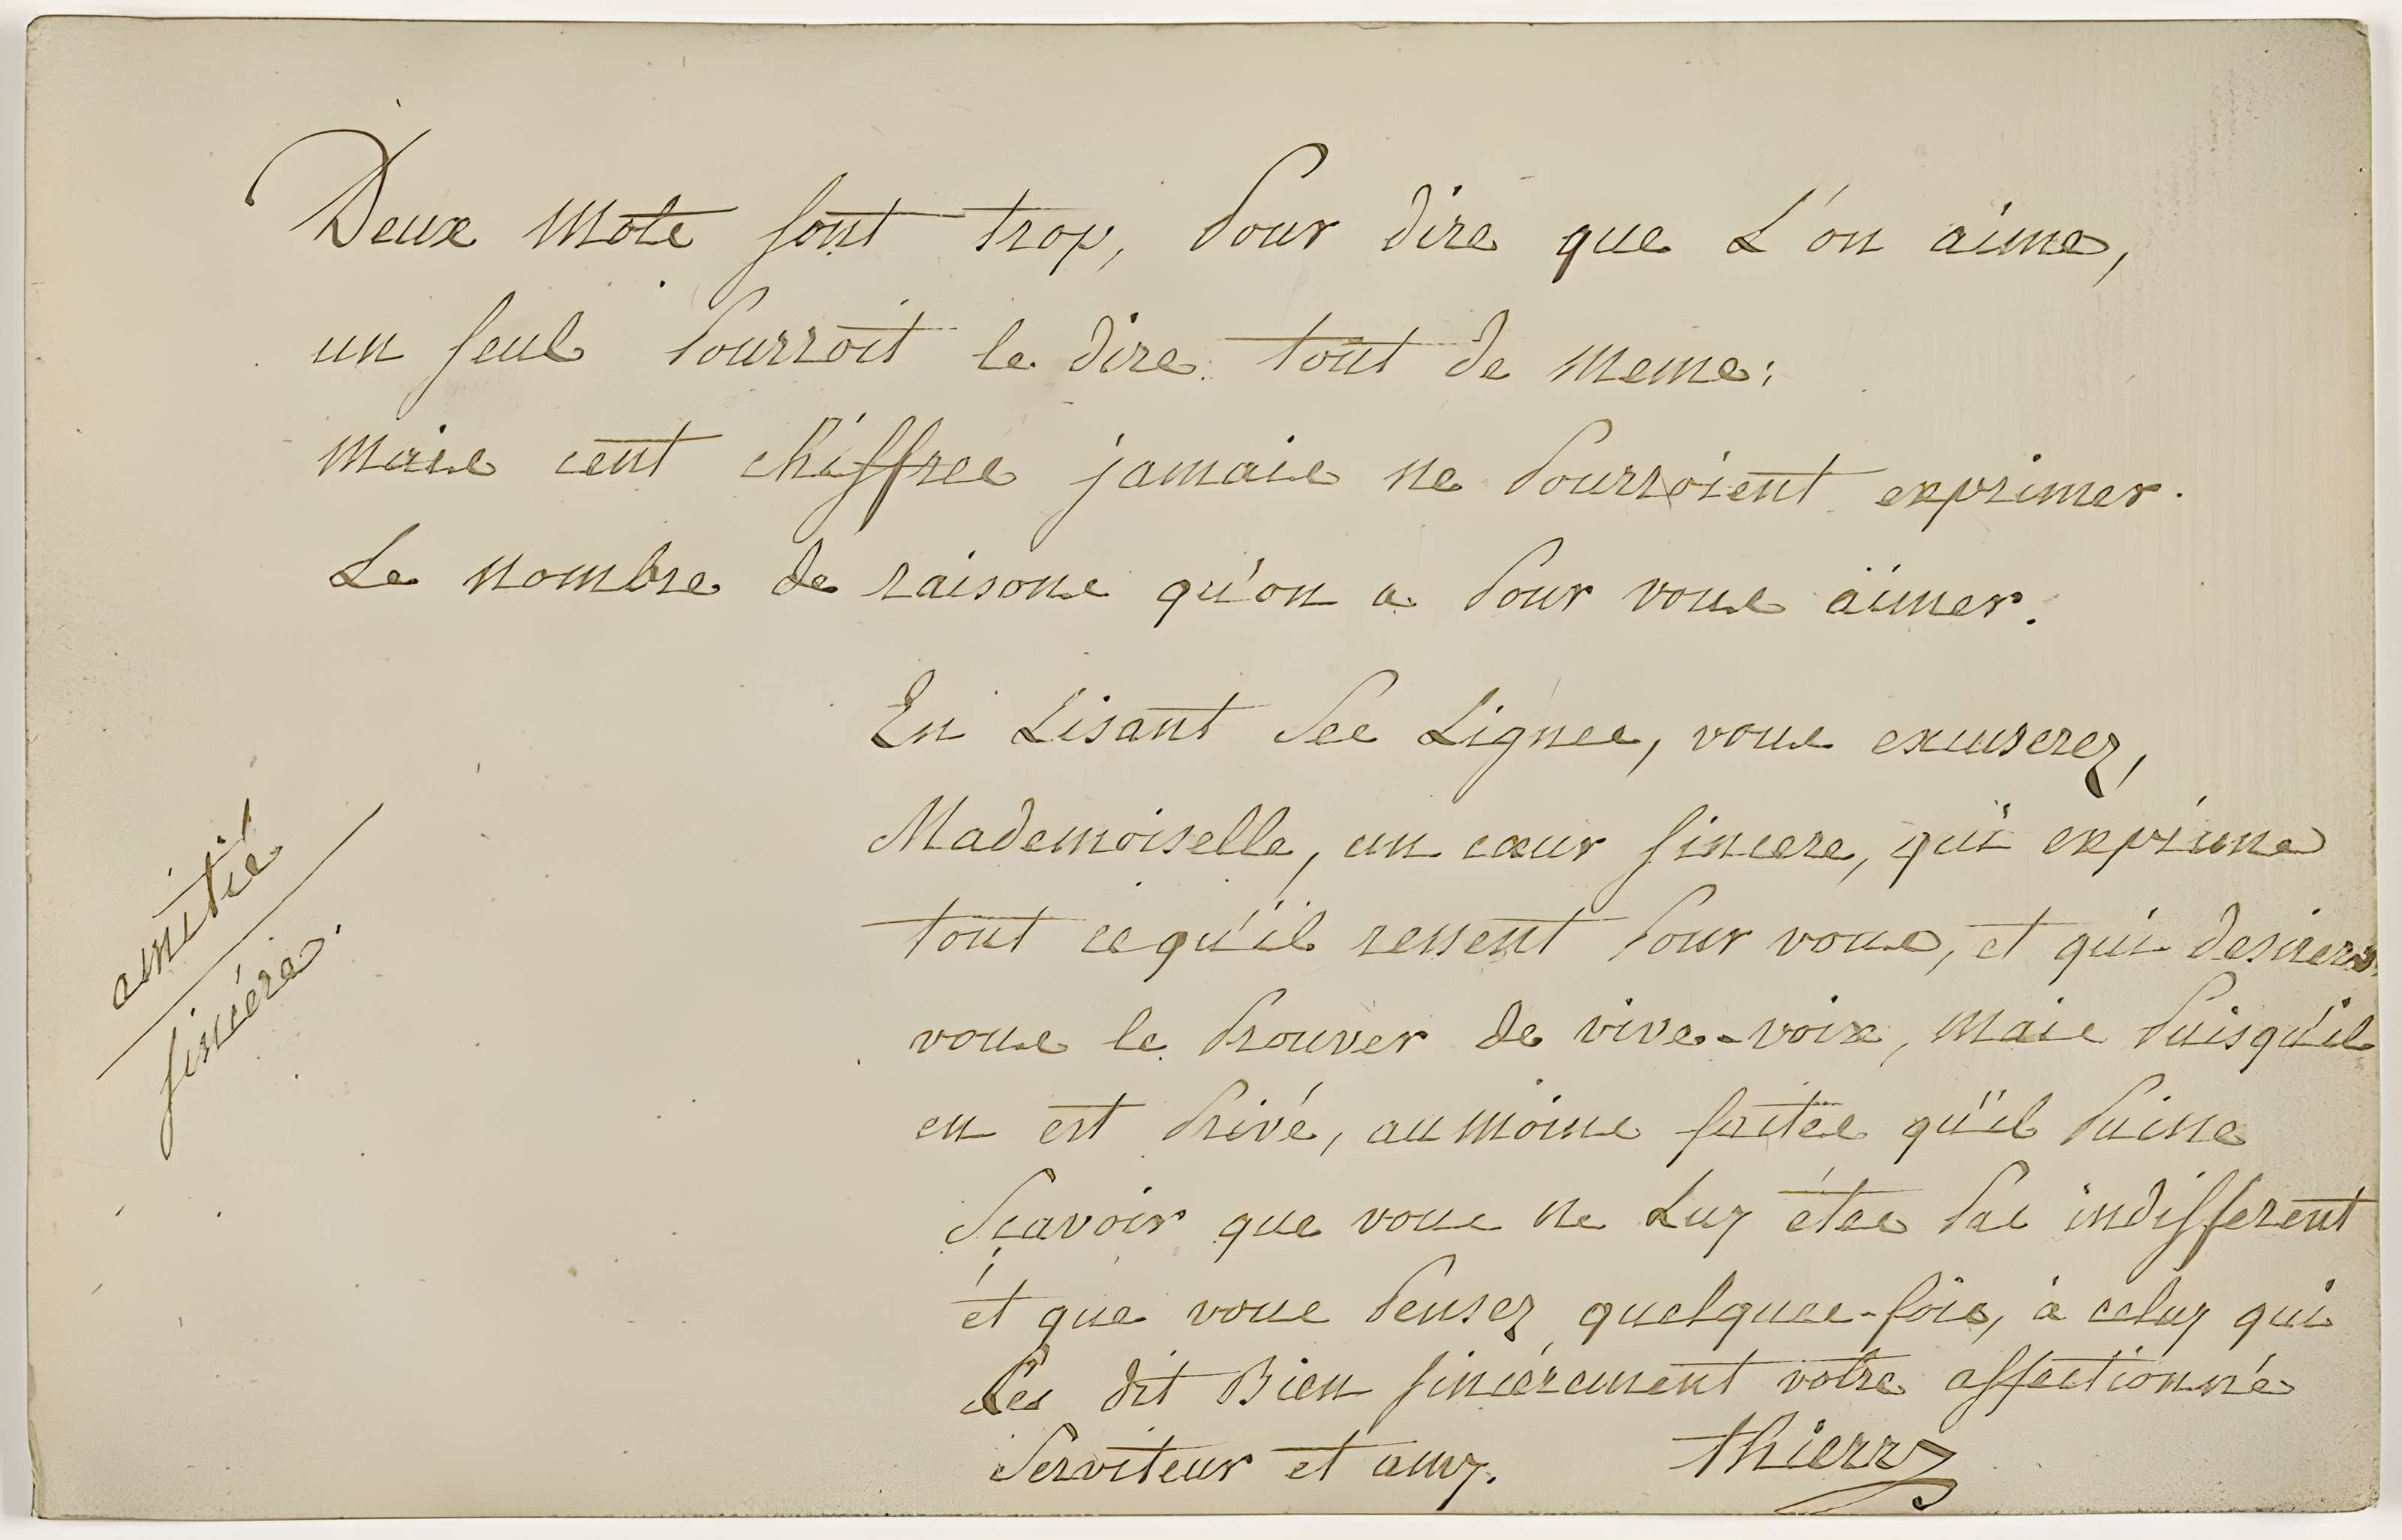 Deux mots sont trop, Pour dire que L'on aime,
un seul Pourroit le dire tout de meme:
mais cent chiffres jamais ne Pourroient exprimer.
Le nombre de raisons qu'on a Pour vous aimer.
En Lisant Ses Lignes, vous excuserez,
Mademoiselle, un cœur sincere, qui exprime
tout ce qu'il ressent Pour vous, et qui desirera
vous le Prouver de vive-voix, mais Puisqu'il
en est Privé, au moins faites qu'il Puisse
Sçavoir que vous ne Luy étes Pas indifferent
et que vous Pensez quelques-fois, à celuy qui
Ses dit Bien sincérement votre affectionné
Serviteur et amy. thierry
amitié
sincére.